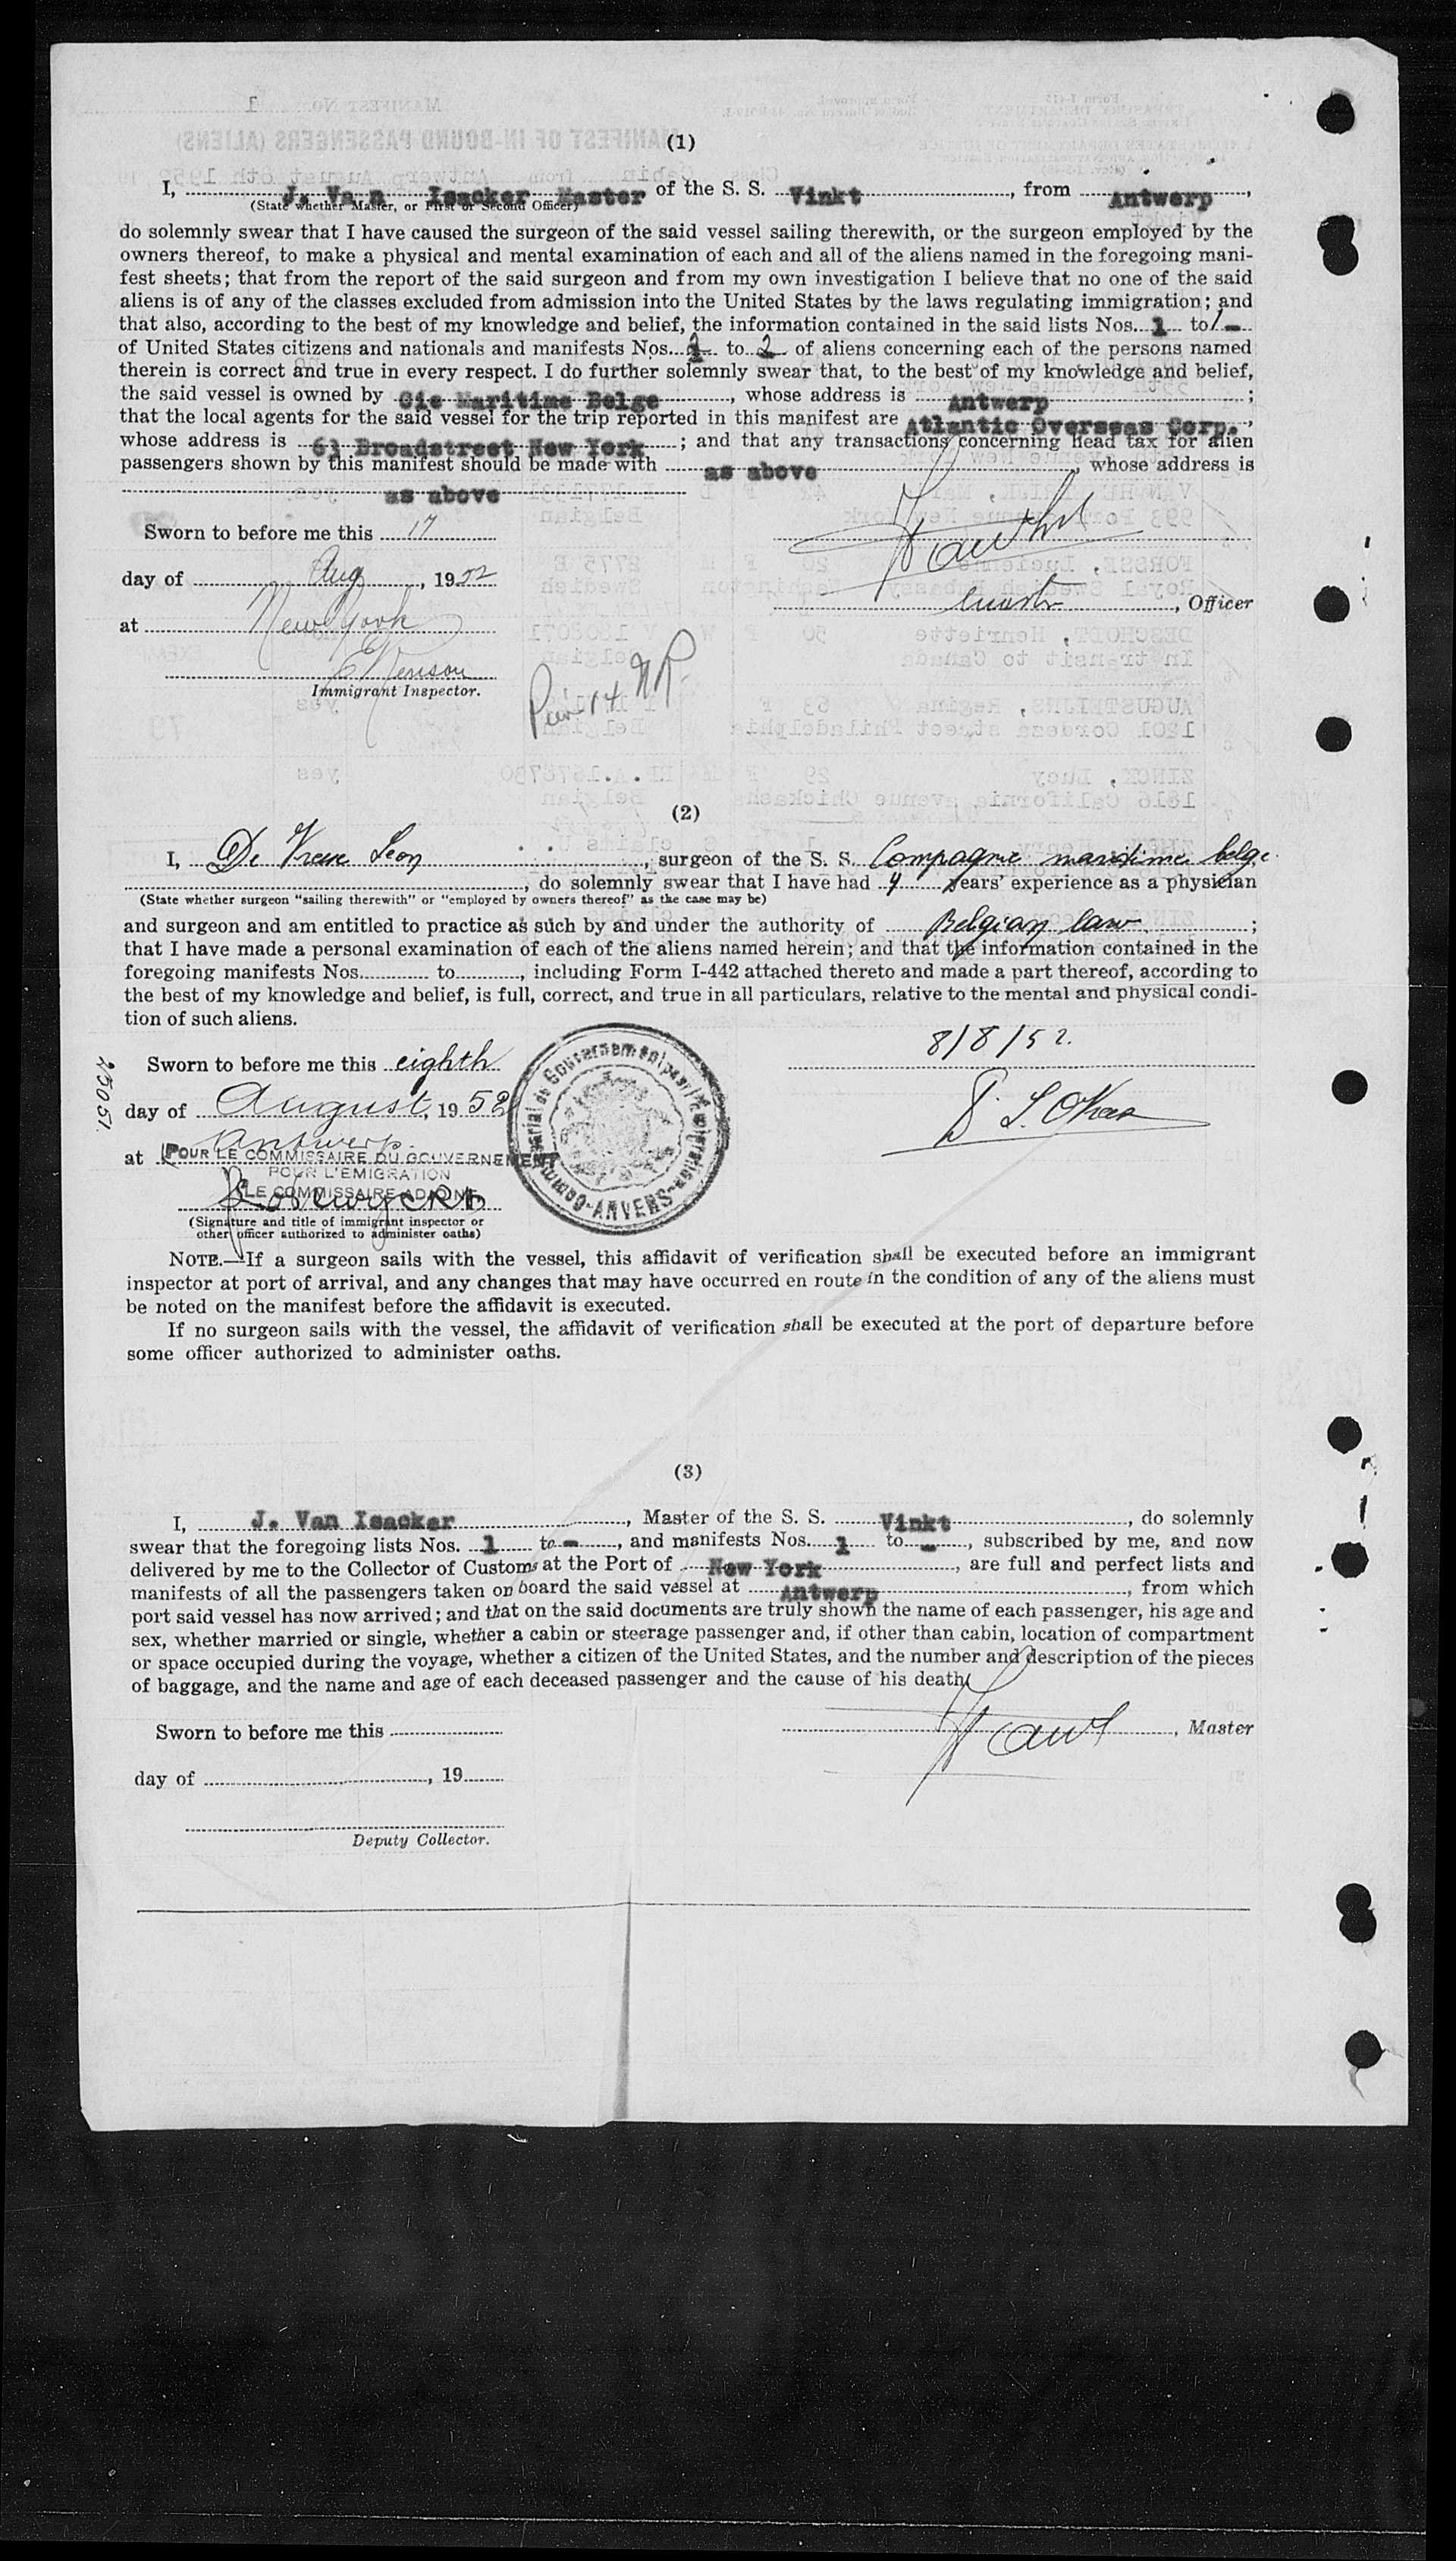 (1)
I, J. Van Isacker Master of the S. S. Vinkt, from Antwerp,
(State whether Master, or First or Second Officer)
do solemnly swear that I have caused the surgeon of the said vessel sailing therewith, or the surgeon employed by the
owners thereof, to make a physical and mental examination of each and all of the aliens named in the foregoing mani-
fest sheets; that from the report of the said surgeon and from my own investigation I believe that no one of the said
aliens is of any of the classes excluded from admission into the United States by the laws regulating immigration; and
that also, according to the best of my knowledge and belief, the information contained in the said lists Nos. 1 to 1 -
of United States citizens and nationals and manifests Nos. to 2 of aliens concerning each of the persons named
therein is correct and true in every respect. I do further solemnly swear that, to the best of my knowledge and belief,
the said vessel is owned by Cie Maritime Belge, whose address is Antwerp;
that the local agents for the said vessel for the trip reported in this manifest are Atlantic Overseas Corp.,
whose address is 63 Broadstreet New York; and that any transactions concerning head tax for alien
passengers shown by this manifest should be made with as above, whose address is
as above
Sworn to before me this 17
day of Aug, 1952
, Officer
at New York
Immigrant Inspector.
Pier 14 NR
(2)
I, De Leon, surgeon of the S. S. Compagnie maritime belge
, do solemnly swear that I have had 4 years' experience as a physician
(State whether surgeon "sailing therewith" or "employed by owners thereof" as the case may be)
and surgeon and am entitled to practice as such by and under the authority of Belgian law;
that I have made a personal examination of each of the aliens named herein; and that the information contained in the
foregoing manifests Nos. to, including Form I-442 attached thereto and made a part thereof, according to
the best of my knowledge and belief, is full, correct, and true in all particulars, relative to the mental and physical condi-
tion of such aliens.
8/8/52.
Sworn to before me this eighth
25051.
day of August, 1952
at Antwerp.
POUR LE COMMISSAIRE DU GOUVERNEMENT
POUR L'EMIGRATION
LE COMMISSAIRE ADJOINT
ANVERS
(Signature and title of immigrant inspector or
other officer authorized to administer oaths)
NOTE.—If a surgeon sails with the vessel, this affidavit of verification shall be executed before an immigrant
inspector at port of arrival, and any changes that may have occurred en route in the condition of any of the aliens must
be noted on the manifest before the affidavit is executed.
If no surgeon sails with the vessel, the affidavit of verification shall be executed at the port of departure before
some officer authorized to administer oaths.
(3)
I, J. Van Isacker, Master of the S. S. Vinkt, do solemnly
swear that the foregoing lists Nos. 1 to -, and manifests Nos. 1 to -, subscribed by me, and now
delivered by me to the Collector of Customs at the Port of New York, are full and perfect lists and
manifests of all the passengers taken on board the said vessel at Antwerp, from which
port said vessel has now arrived; and that on the said documents are truly shown the name of each passenger, his age and
sex, whether married or single, whether a cabin or steerage passenger and, if other than cabin, location of compartment
or space occupied during the voyage, whether a citizen of the United States, and the number and description of the pieces
of baggage, and the name and age of each deceased passenger and the cause of his death.
Sworn to before me this
, Master
day of, 19
Deputy Collector.